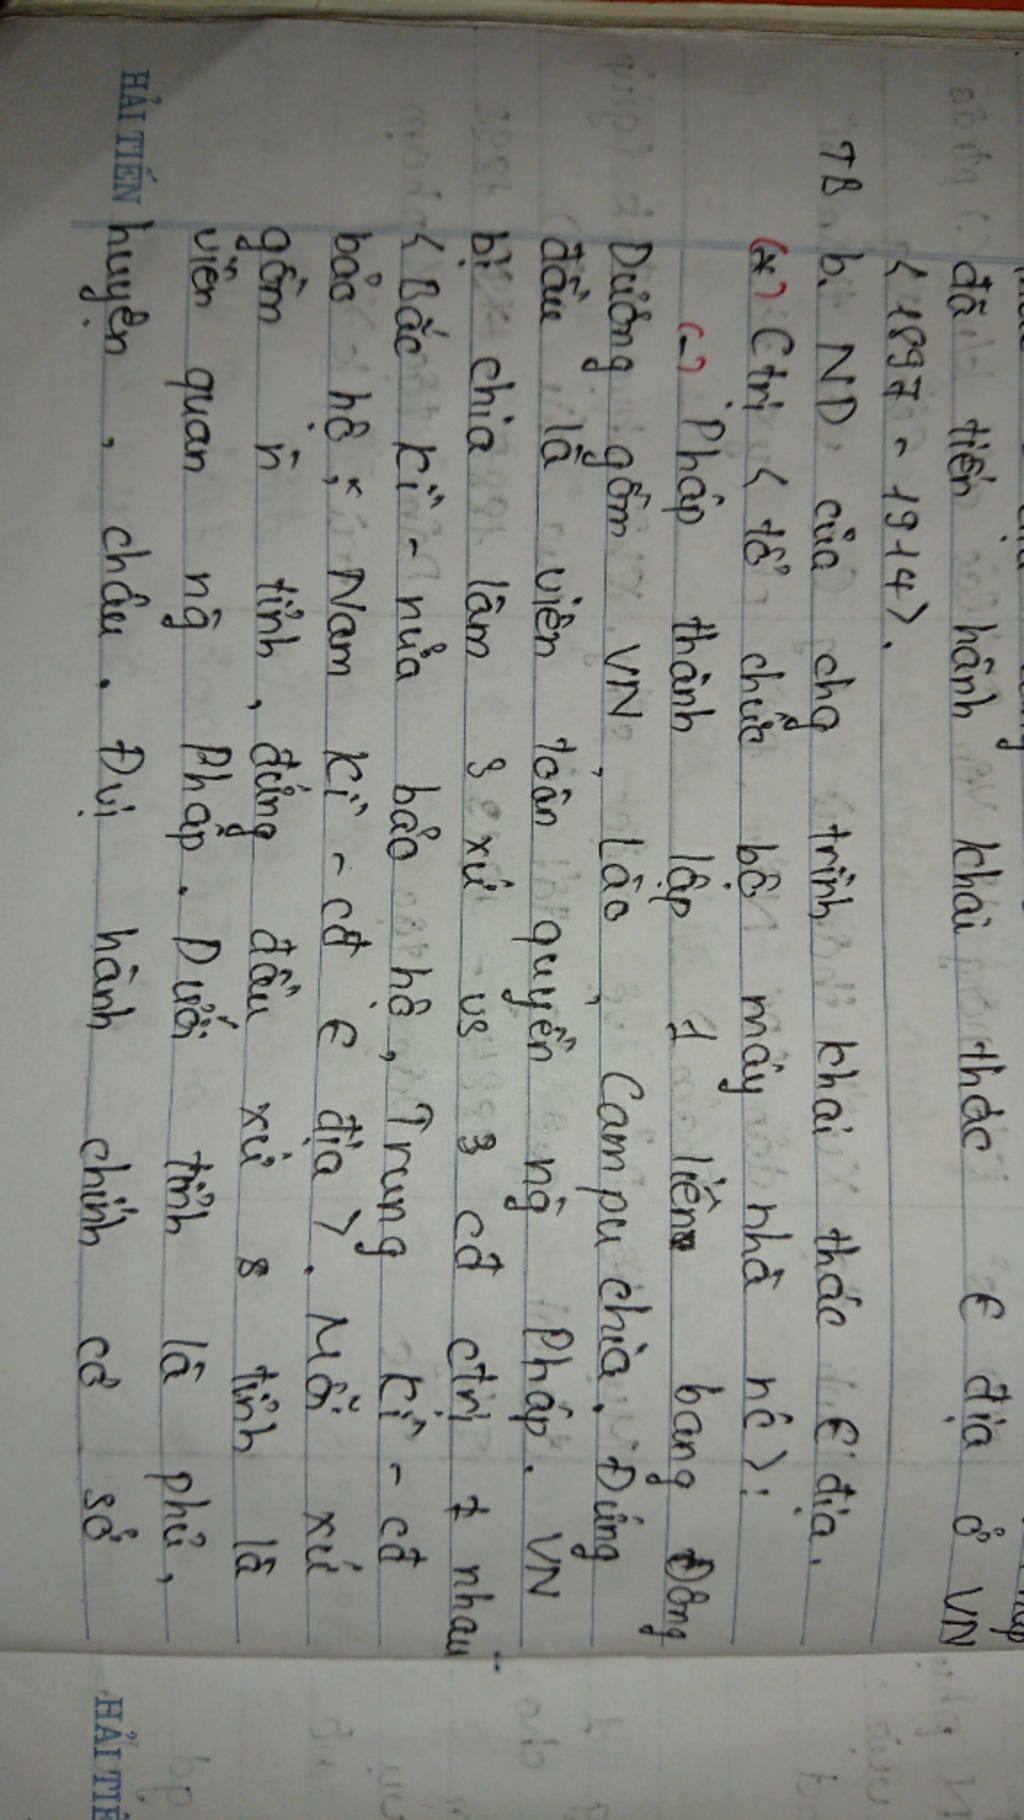 đã tiến hành khai thác € địa ở VN
< 1897 - 1914>.
TB b. ND của chg trình khai thác € địa.
(*) Ctrị < tổ chức bộ máy nhà nc>:
(-) Pháp thành lập 1 liên bang Đông
Dương gồm VN, Lào, Cam pu chia. Đứng
đầu là viên toàn quyền ng Pháp. VN
bị chia làm 3 xứ vs 3 cđ ctrị ≠ nhau
< Bắc kì - nửa bảo hộ, Trung kì - cđ
bảo hộ, Nam kì - cđ € địa>. Mỗi xứ
gồm n tỉnh, đứng đầu xứ & tỉnh là
viên quan ng Pháp. Dưới tỉnh là phủ,
huyện, châu. Đvị hành chính cơ sở
HẢI TIẾN
HẢI TIẾ